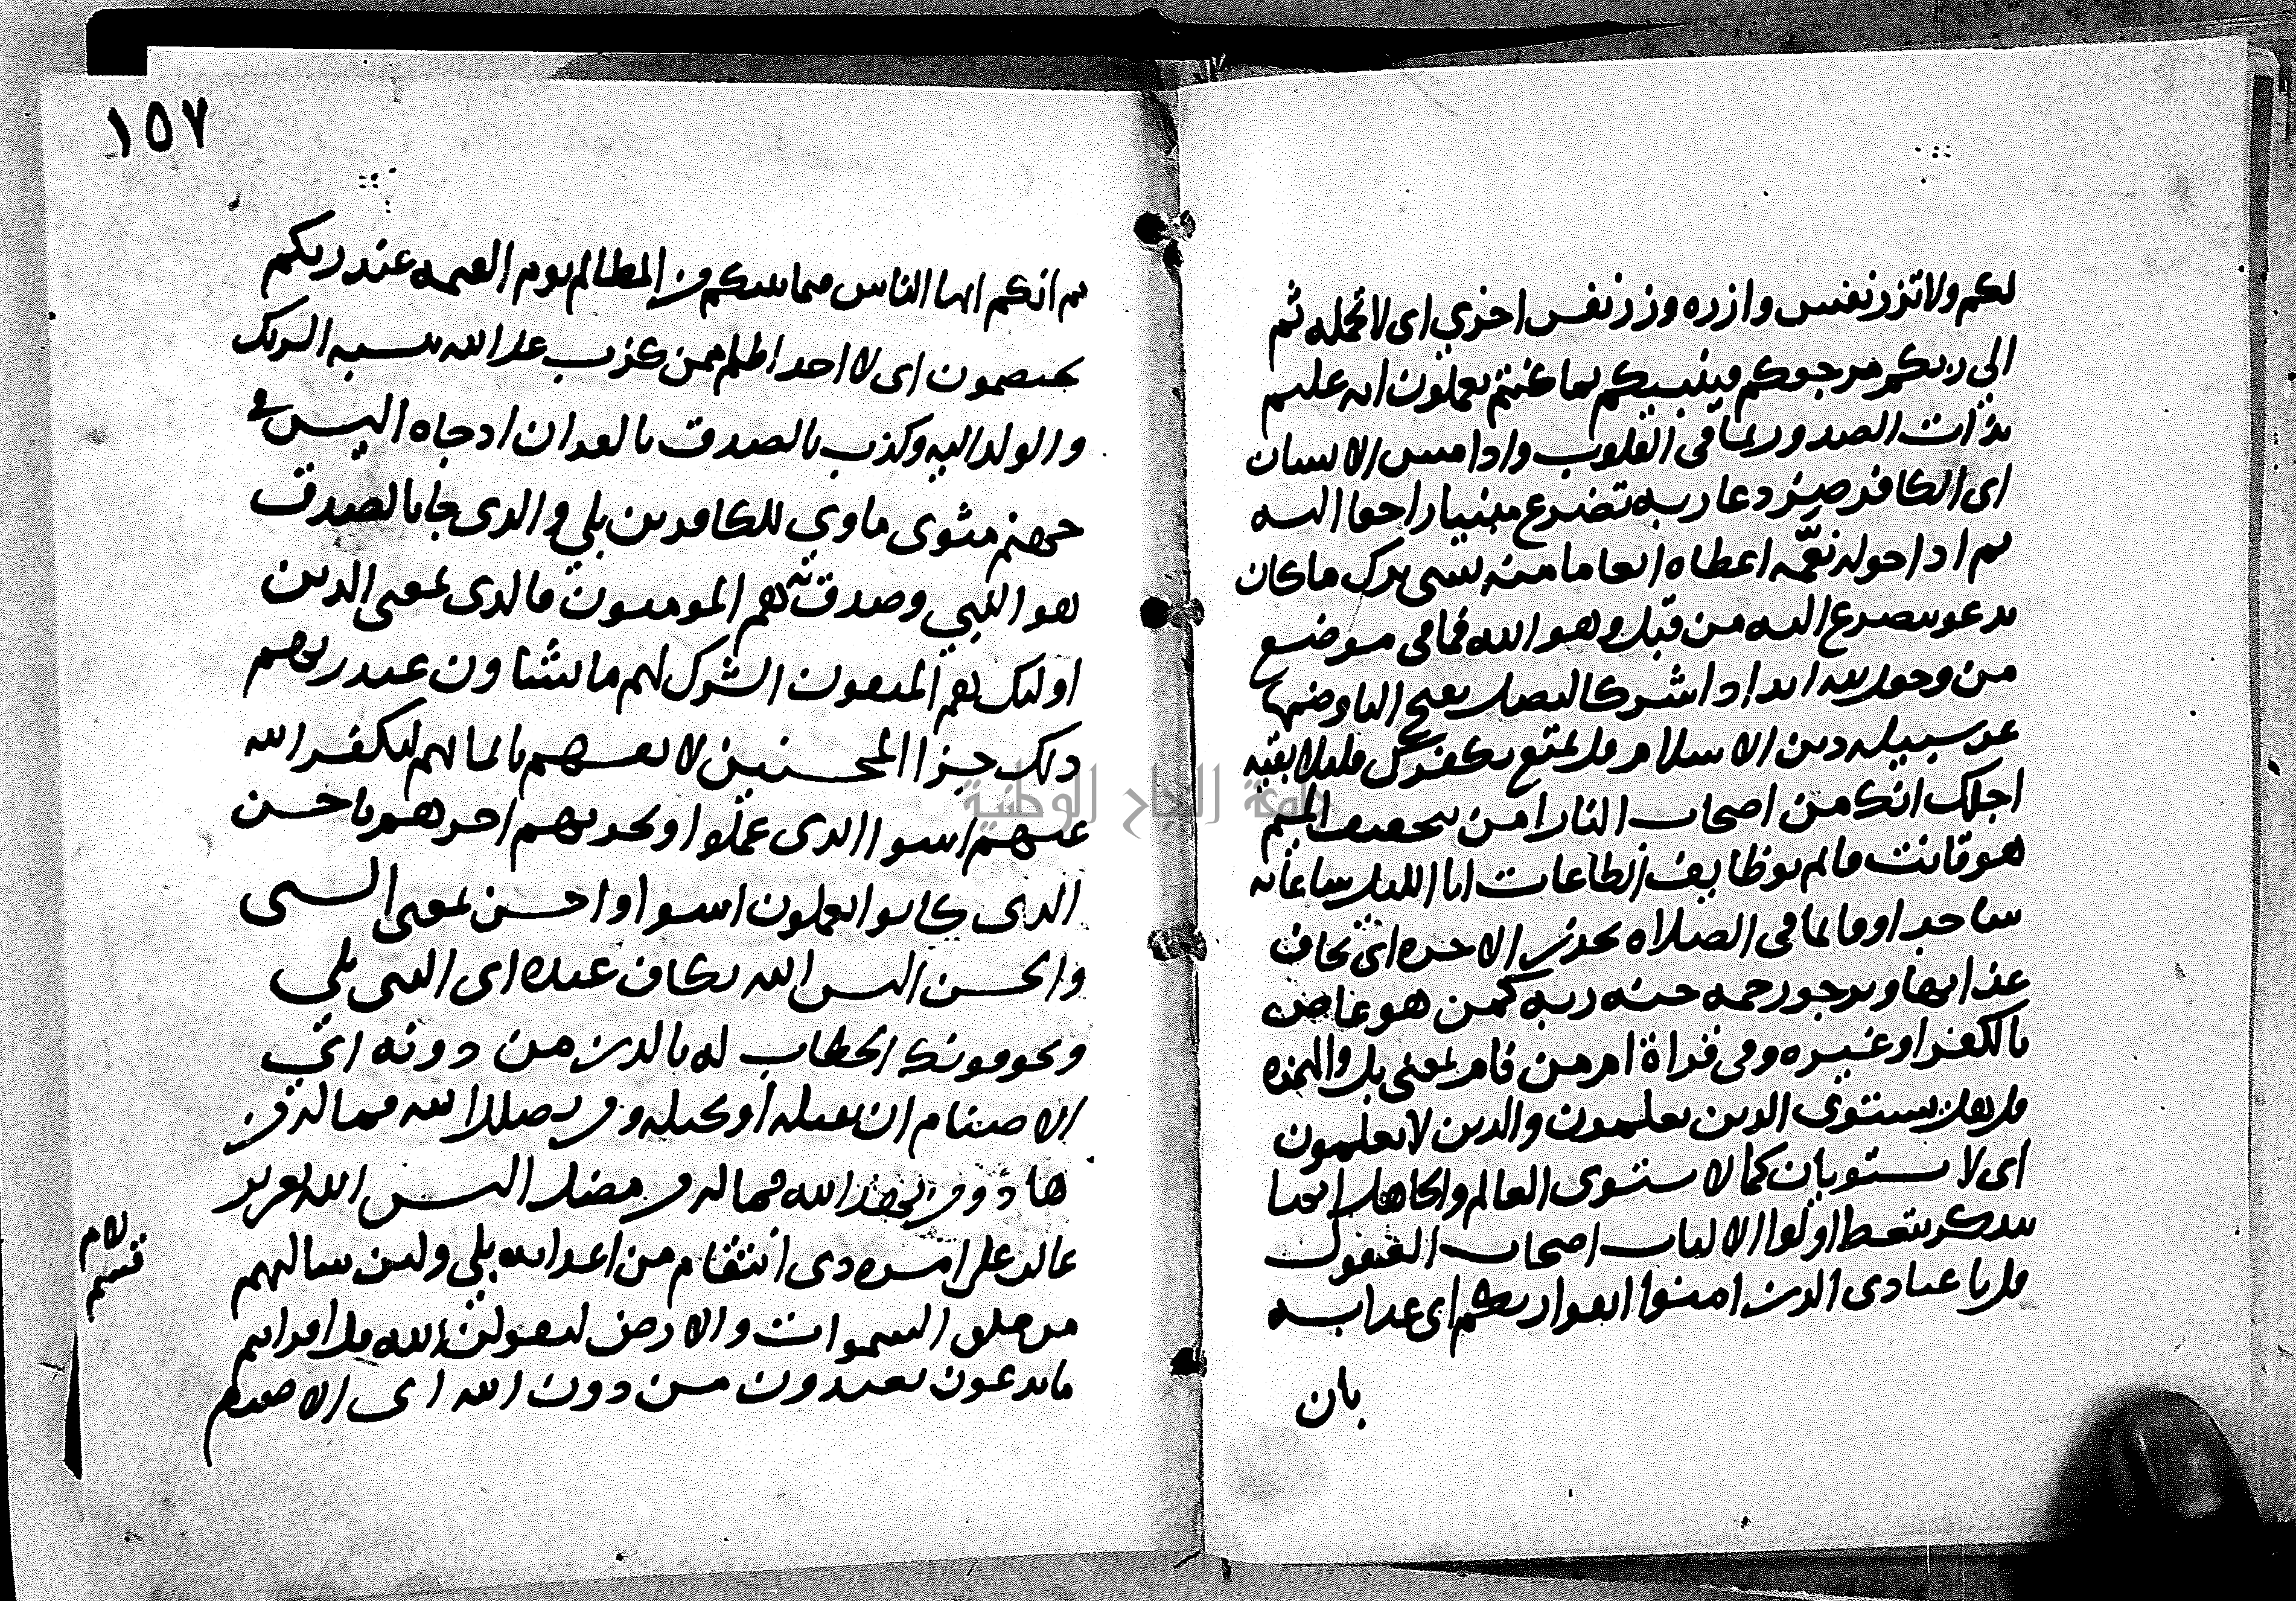 لكم ولا تزر نفس وازره وزر نفس اخري اى لا تحمله ثم
الي ربكم مرجعكم فينبيكم بما كنتم تعملون انه عليم
بذات الصدور بما في القلوب واذا مس الانسان
اى الكافر ضر دعا ربه تضرع منيبا راجعا اليه
ثم اذا خوله نعمه اعطاه انعاما منه نسى ترك ما كان
يدعو يتضرع اليه من قبل وهو الله فما في موضع
من وجعل لله اندادا شركا ليضل بفتح اليا وضمها
عن سبيله دين الاسلام قل تمتع بكفرك قليلا بقيه
اجلك انك من اصحاب النار امن بتخفيف الميم
هو قانت قايم بوظايف الطاعات انا الليل ساعاته
ساجدا وقايما في الصلاه يحذر الاخره اى يخاف
عذابها ويرجو رحمه جنه ربه كمن هو عاص
بالكفر او غيره وفي قراة ام من فام بمعنى بل والهمزه
قل هل يستوي الذين يعلمون والذين لا يعلمون
اى لا يستويان كما لا يستوى العالم والجاهل انما
يتذكر يتعظ اولوا الالباب اصحاب العقول
قل يا عبادى الذين امنوا اتقوا ربكم اى عذابه
بان
١٥٧
ثم انكم ايها الناس فيما بينكم من المظالم يوم القيمه عند ربكم
تختصمون اى لا احد اظلم ممن كذب على الله بنسبه الشريك
والولد اليه وكذب بالصدق بالقران اذ جاه اليس في
جهنم مثوى ماوي للكافرين بلي والذى جا بالصدق
هو النبي وصدق به هم المومنون فالذى بمعنى الذين
اوليك هم المتقون الشرك لهم ما يشاون عند ربهم
ذلك جزا المحسنين لانفسهم بايمانهم ليكفر الله
عنهم اسوا الذى عملوا ويجزيهم اجرهم باحسن
الذى كانوا يعملون اسوا واحسن بمعنى السى
والحسن اليس الله بكاف عبده اى النبى بلي
ويخوفونك الخطاب له بالذين من دونه اى
الاصنام ان تقتله او تخبله ومن يضلل الله فما له من
هاد ومن يهد الله فما له من مضل اليس الله بعزيز
غالب على امره ذى انتقام من اعدايه بلي ولين سالتهم
لام
قسم
من خلق السموات والارض ليقولن الله قل افرايتم
ما تدعون تعبدون من دون الله اى الاصنام
جامعة النجاح الوطنية